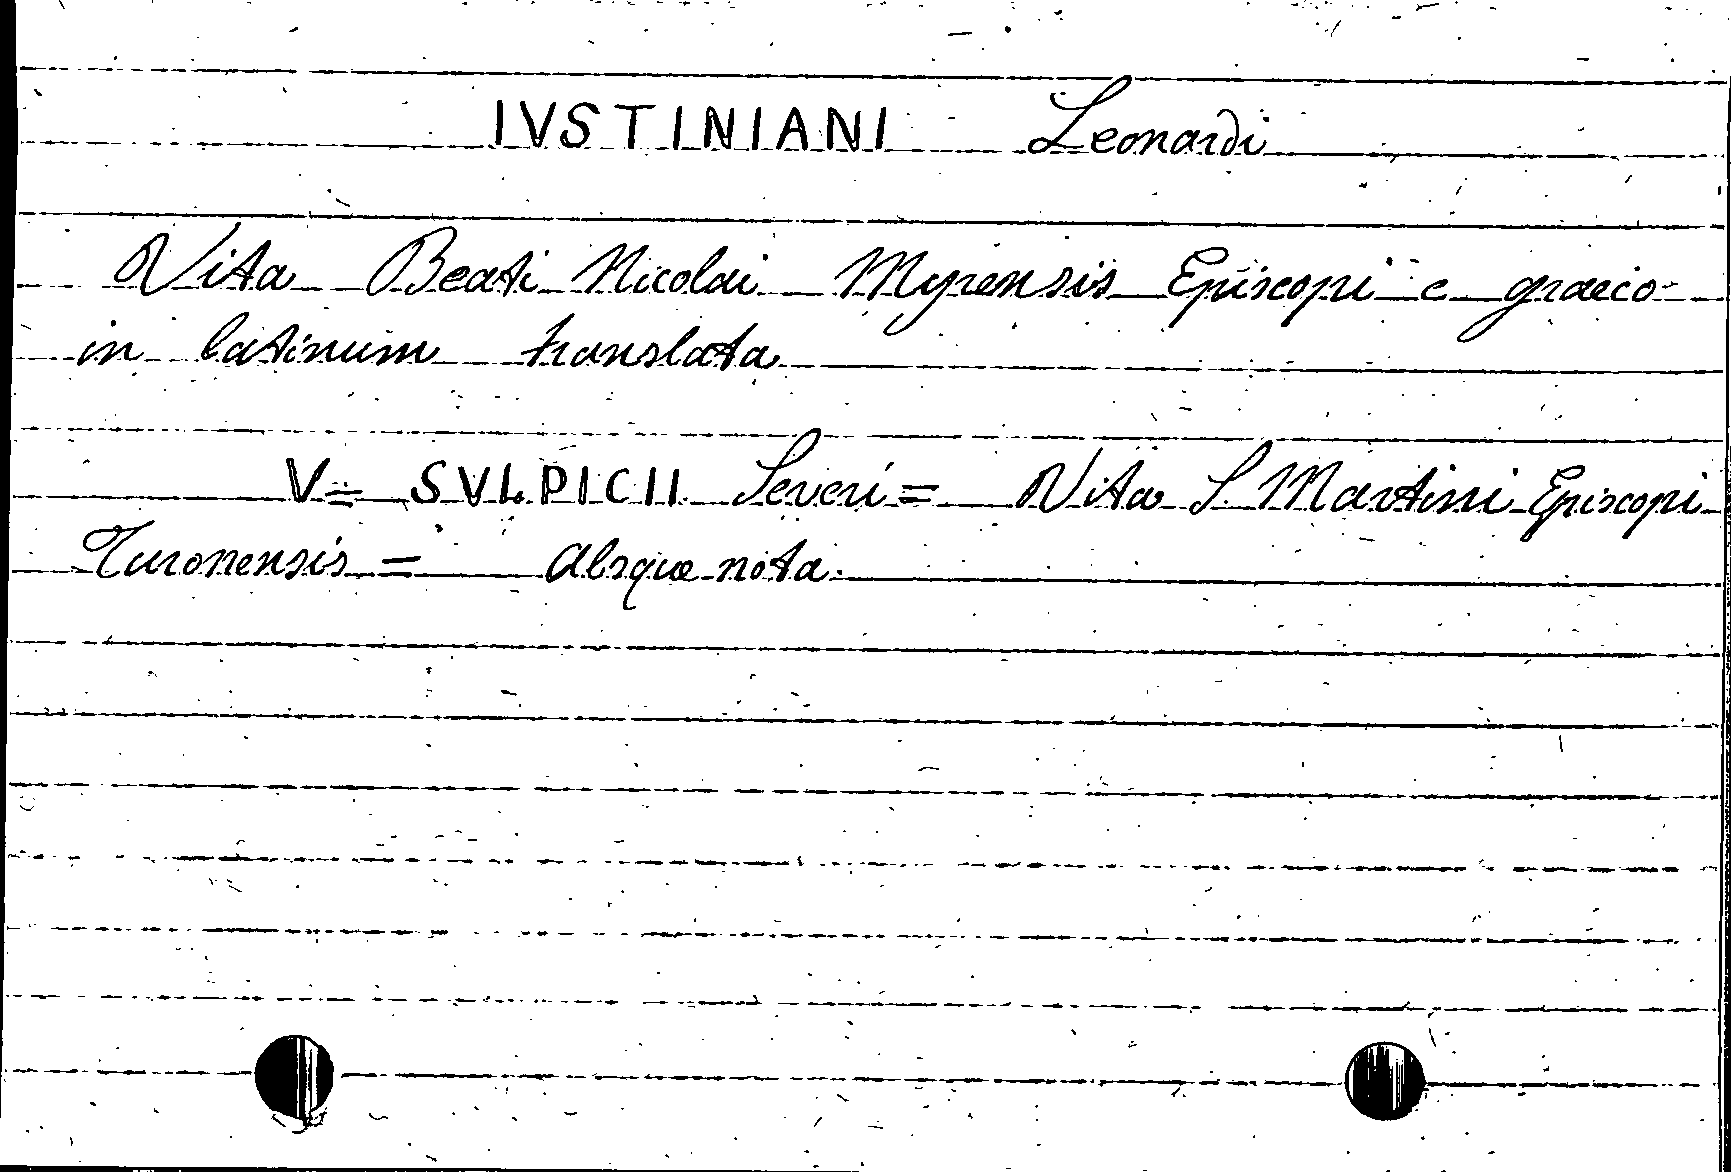 IVSTINIANI Leonardi
Vita Beati Nicolai Myrensis Episcopi e graeco
in latinum translata
V= SVLPICII Severi= Vita S. Martini Episcopi
Turonensis = Absque nota.